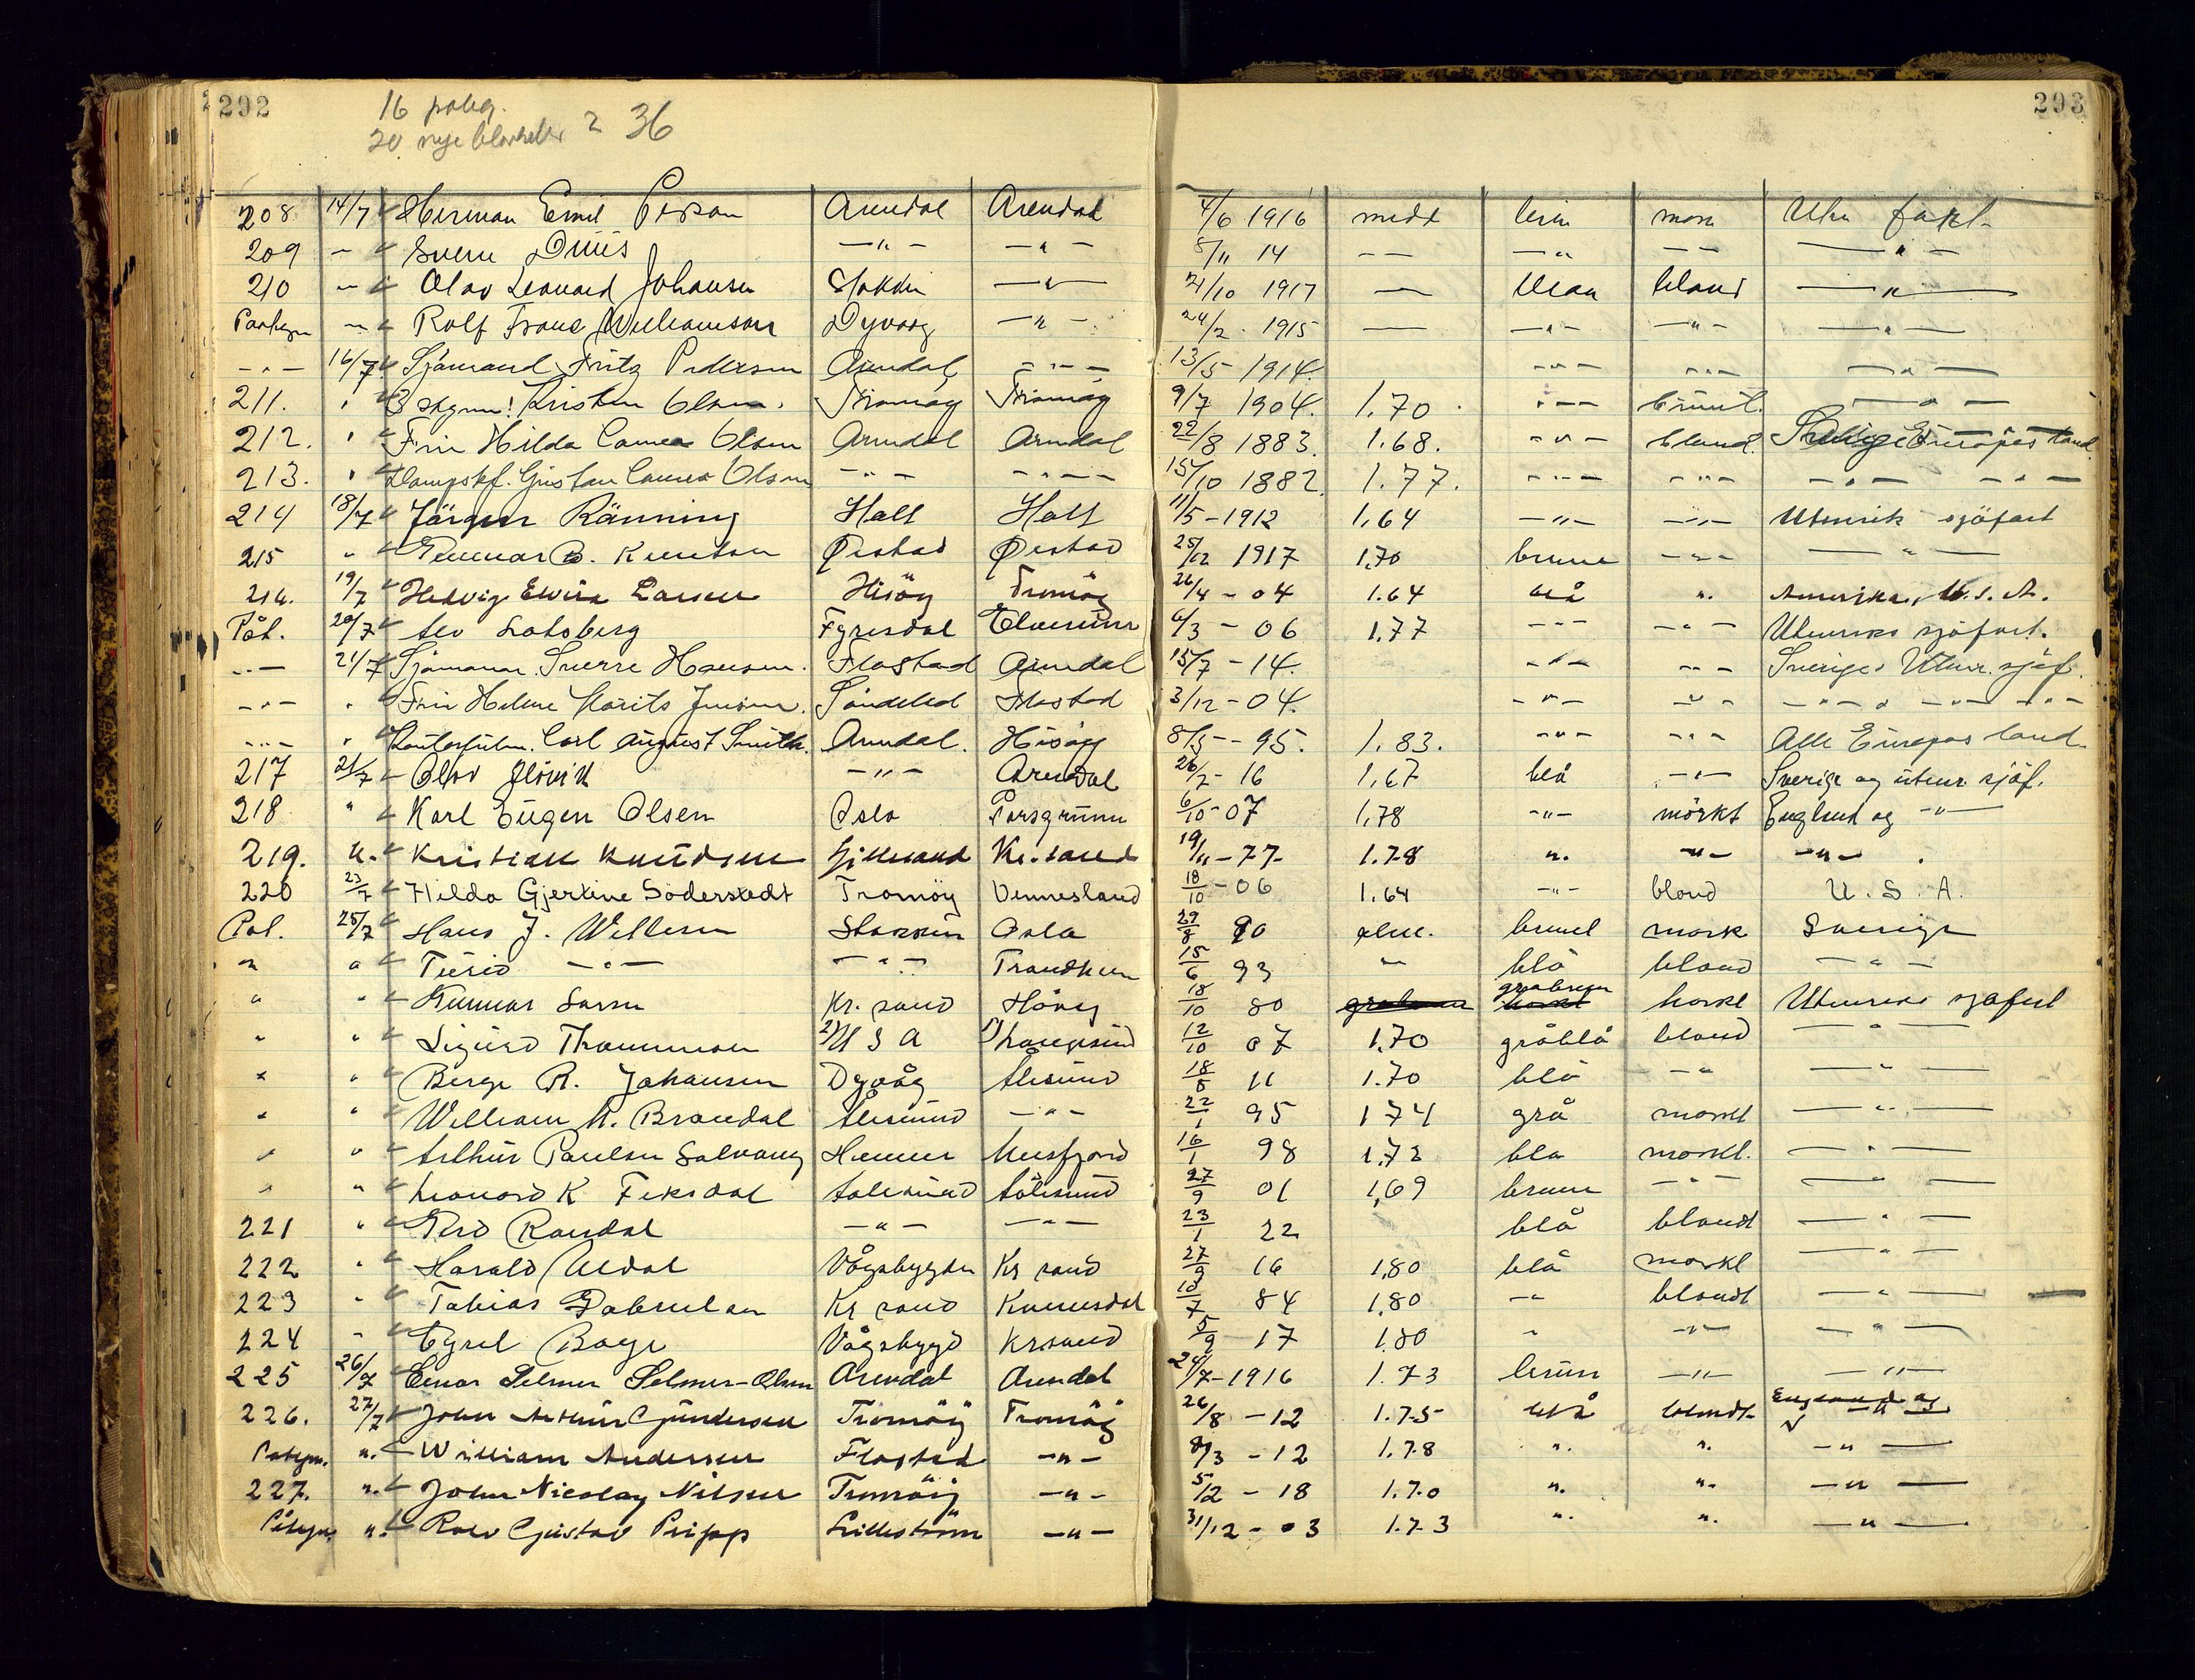 292
293
16 påteg.
20 nye blanketter = 36
208 14/7 Herman Emil Arendal Arendal 4/6 1916 midt brun mørk Uten fart
209 - Sverre Duus -"- -"- 8/11 14 - - -"- - - -"-
210 - Olav Leonard Johansen Stokken -"- 21/10 1917 - blaa blond -"-
Paategn - Rolf Frans Williamson Dyvaag -"- 24/2 1915 - -"- -"- -"-
-"- 16/7 Sjömand Fritz Pedersen Arendal -"- 13/5 1914. -"- -"- -"-
211. " Kristen Olsen. Tromøy Tromøy 9/7 1904. 1.70. -"- brunt. -"-
212. " Fru Hilda Olsen Arendal Arendal 22/8 1883. 1.68. -"- blond. Europas land
213. " Dampskf. Gustav Olsen -"- -"- 15/10 1882. 1.77. -"- -"- -"- -"-
214 18/7 Jörgen Ränning Holt Holt 11/5-1912 1,64 -"- -"- Utenriks sjöfart
215 " Gunnar B. Knutson Øiestad Øiestad 25/12 1917 1,70 brune -"- -"-
216. 19/7 Hedvig Elvira Larsen Hisöy Tromöy 26/4-04 1.64 blå ". Amerika, U.S.A.
Påt. 20/7 Fyresdal Elverum 6/3-06 1,77 -"- -"- Utenriks sjöfart.
-"- 21/7 Sjömann Sverre Hansen. Flostad Arendal 15/7-14. -"- -"- Sverige Utenr. sjöf.
-"- " Fru Helene Marits Jensen. Söndeled Flostad 3/12-04. -"- -"- -"- -"-
-"- " Carl August Smith. Arendal. Hisöy 8/5--95. 1.83. -"- -"- Alle Europas land.
217 21/7 Olav -"- Arendal 26/2-16 1,67 blå -"- Sverige og utenr sjöf.
218 " Karl Eugen Olsen Oslo Porsgrunn 6/10-07 1,78 -"- mörkt England og -"-
219. ". Kristian Knudsen Kr.sand 19/11-77- 1.78 ". -"- -"-
220 23/7 Hilda Gjertine Söderstedt Tromöy Vennesland 18/10-06 1.64 -"- blond U.S.A.
Påt. 25/7 Hans J. Willesen Stokken Oslo 29/8 90 alm. brunel mørk Sverige
" " Turid -"- -"- Trondheim 15/6 93 " blå blond -"-
" " Gunnar Larsen Kr. sand Hövåg 18/10 80 gråbrun mørkt Utenriks sjøfart
" " Sigurd Thommesen U S A 12/10 07 1,70 gråblå blond -"-
" " Berge R. Johansen Dyvåg Ålesund 18/8 11 1.70 blå -"- -"-
" " William A. Brandal Ålesund -"- 22/1 95 1 74 grå mørkt -"-
" " Arthur Paulsen Solvang 16/1 98 1,73 blå mørkt. -"-
" " Leonard K Feksdal Aalesund Aalesund 27/9 01 1,69 brune -"- -"-
221 " Randal -"- -"- 23/1 22 blå blondt -"-
222 " Harald Vågsbygden Kr sand 27/9 16 1,80 blå mørkt -"-
223 " Tobias Gabrielsen Kr sand 10/7 84 1,80 -"- blondt -"-
224 " Cyril Boye Vågsbygd Kr.sand 5/9 17 1.80 " -"- -"-
225 26/7 Einar Selmer Selmer-Olsen Arendal Arendal 24/7-1916 1.73 brun -"- -"-
226. 27/7 John Arthur Gundersen Tromöy Tromöy 26/8-12 1.75 blå blondt England og -"-
Påtegn. ". William Andersen Flostad -"- 8/3-12 1.78 ". ". -"-
227. ". John Nicolay Nilsen Tromöy -"- 5/2-18 1.70 ". ". -"-
Påtegn. ". Rolv Gustav Pripp Lilleström -"- 31/12-03 1.73 ". ". -"-